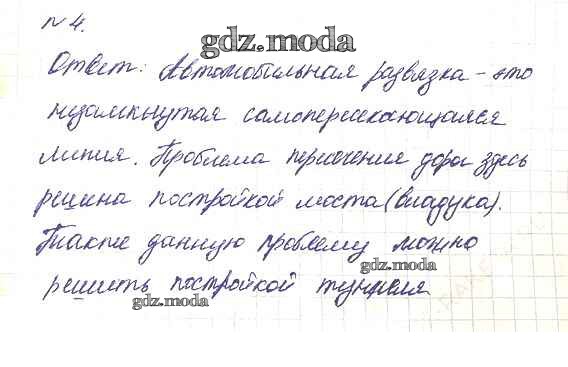 № 4.
gdz.moda
Ответ: Автомобильная развязка - это
незамкнутая самопересекающаяся
линия. Проблема пересечения дорог здесь
решена постройкой моста (виадука).
Также данную проблему можно
gdz.moda
решить постройкой туннеля
gdz.moda